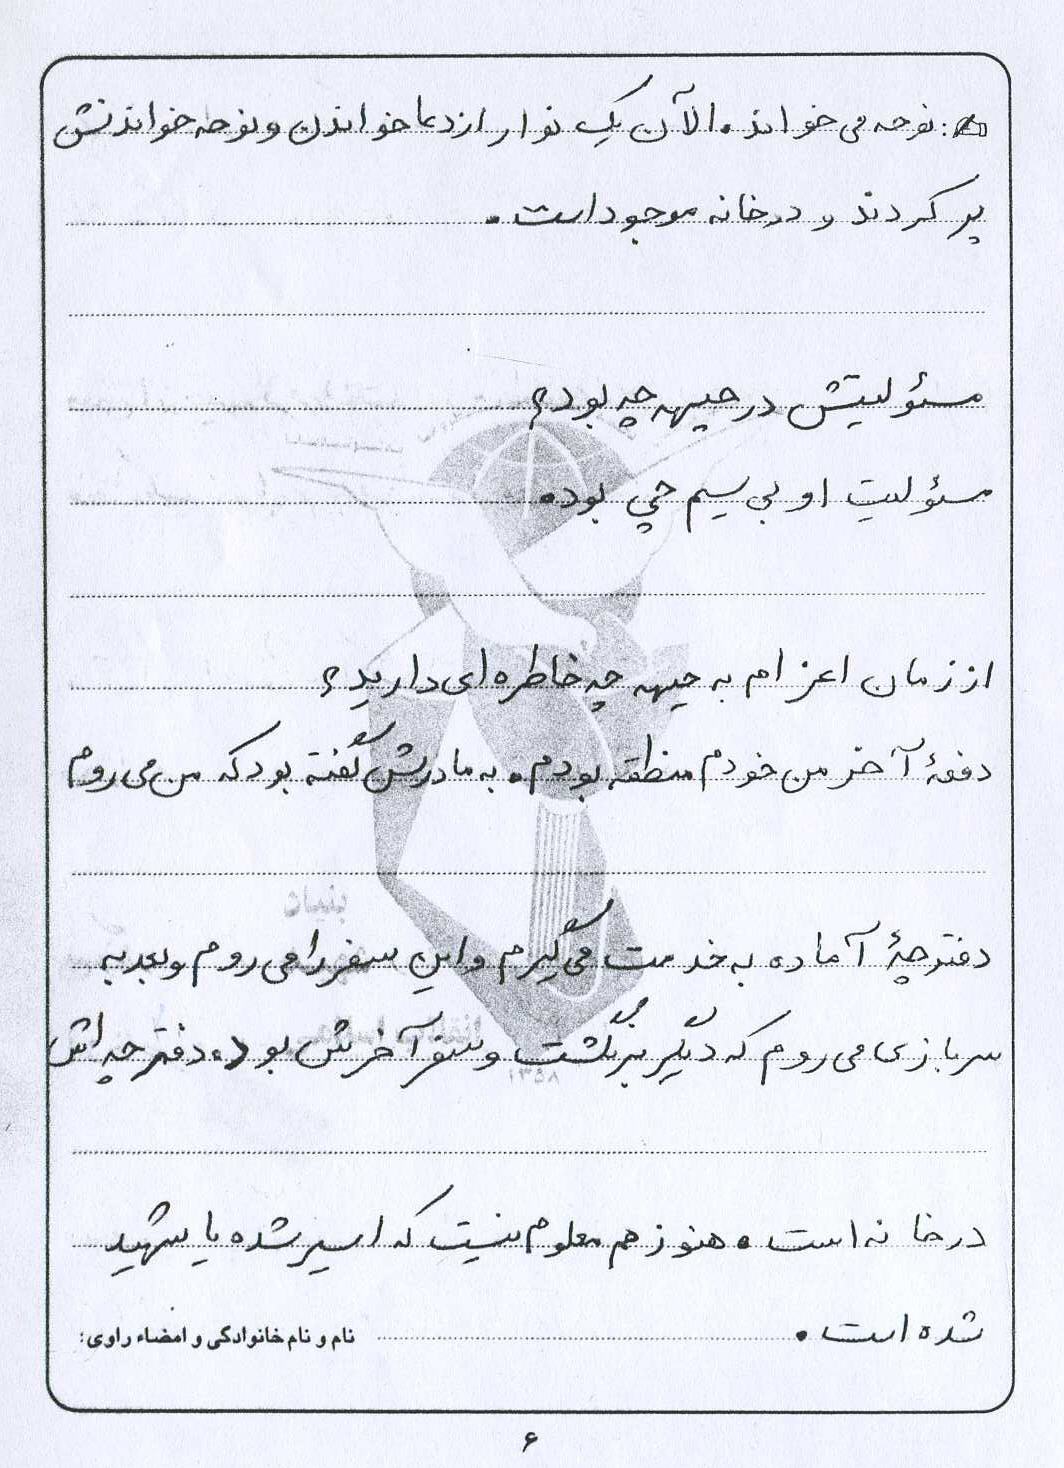 : نوحه می خواند. الآن یک نوار از دعا خواندن و نوحه خواندنش
پر کردند و در خانه موجود است.
مسئولیتش در جبهه چه بود؟
مسئولیت او بی سیم چی بود.
از زمان اعزام به جبهه چه خاطره ای دارید؟
دفعۀ آخر من خودم منطقه بودم. به مادرش گفته بود که من می روم
بنیاد
دفترچۀ آماده به خدمت می گیرم و این سفر را می روم و بعد به
سربازی می روم که دیگر برنگشت و سفر آخرش بود. دفترچه اش
۱۳۵۸
در خانه است. هنوز هم معلوم نیست که اسیر شده یا شهید
شده است.
نام و نام خانوادگی و امضاء راوی:
۶